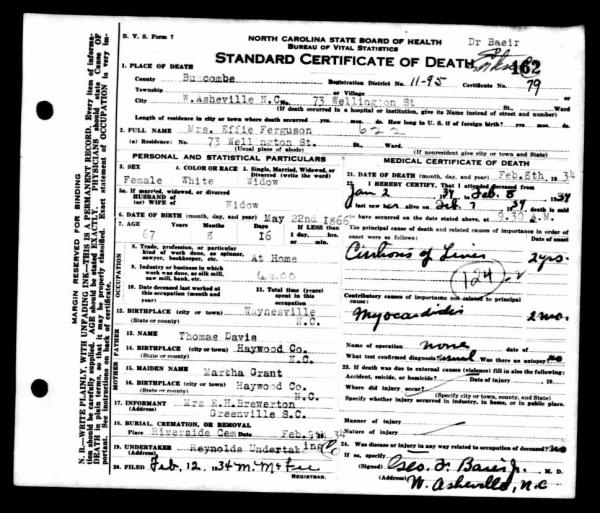 B. V. S. Form 7
NORTH CAROLINA STATE BOARD OF HEALTH
BUREAU OF VITAL STATISTICS
Dr Baeir
STANDARD CERTIFICATE OF DEATH
162
1. PLACE OF DEATH
County Buncombe Registration District No. 11-95 Certificate No. 79
Township or Village
City W.Asheville N.C. No. 73 Wellington St St., Ward
(If death occurred in a hospital or institution, give its Name instead of street and number)
Length of residence in city or town where death occurred yrs. mos. ds. How long in U. S. if of foreign birth? yrs. mos. ds.
2. FULL NAME Mrs. Effie Ferguson 622
(a) Residence: No. 73 Wellington St. St., Ward
(Usual place of abode) (If nonresident give city or town and State)
PERSONAL AND STATISTICAL PARTICULARS
3. SEX Female
4. COLOR OR RACE White
5. Single, Married, Widowed, or Divorced (write the word) Widow
5a. If married, widowed, or divorced
HUSBAND of
(or) WIFE of Widow
6. DATE OF BIRTH (month, day, and year) May 22nd 1866
7. AGE Years Months Days If LESS than
67 8 16 1 day, hrs.
or min.
OCCUPATION
8. Trade, profession, or particular
kind of work done, as spinner,
sawyer, bookkeeper, etc. At Home
9. Industry or business in which
work was done, as silk mill,
saw mill, bank, etc.
10. Date deceased last worked at
this occupation (month and
year)
11. Total time (years)
spent in this
occupation
12. BIRTHPLACE (city or town) Waynesville
(State or county) N.C.
FATHER
13. NAME Thomas Davis
14. BIRTHPLACE (city or town) Haywood Co.
(State or county) N.C.
MOTHER
15. MAIDEN NAME Martha Grant
16. BIRTHPLACE (city or town) Haywood Co.
(State or county) N.C.
17. INFORMANT Mrs E.H.Brewerton
(Address) Greenville S.C.
18. BURIAL, CREMATION, OR REMOVAL
Place Riverside Cem Date Feb.9th 34
19. UNDERTAKER Reynolds Undertaking
(Address)
20. FILED Feb. 12, 34 M. McFee
REGISTRAR.
MEDICAL CERTIFICATE OF DEATH
21. DATE OF DEATH (month, day, and year) Feb.8th, 19 34
22. I HEREBY CERTIFY, That I attended deceased from
Jan 2 34, to Feb. 8 1934
I last saw her alive on Feb. 7 1934, death is said
to have occurred on the date stated above, at 9.30 A.M.
The principal cause of death and related causes of importance in order of
onset were as follows: Date of onset
Cirrhosis of Liver 2 yrs.
Contributory causes of importance not related to principal
cause:
Myocarditis 2 mo.
Name of operation none Date of
What test confirmed diagnosis? usual Was there an autopsy? no
23. If death was due to external causes (violence) fill in also the following:
Accident, suicide, or homicide? Date of injury 19
Where did injury occur?
Specify whether injury occurred in industry, in home, or in public place.
Manner of injury
Nature of injury
24. Was disease or injury in any way related to occupation of deceased? no
If so, specify
(Signed) M. D.
(Address) W. Asheville, N.C
MARGIN RESERVED FOR BINDING
N. B.—WRITE PLAINLY, WITH UNFADING INK—THIS IS A PERMANENT RECORD. Every item of information should be carefully supplied. AGE should be stated EXACTLY. PHYSICIANS should state Cause OF DEATH in plain terms, so that it may be properly classified. Exact statement of OCCUPATION is very important. See instructions on back of certificate.